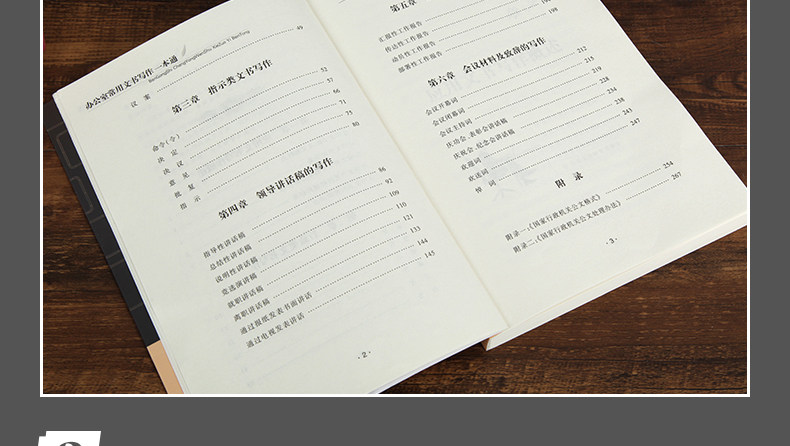 办公室常用文书写作一本通
议 案 49
第三章 指示类文书写作
命令(令) 52
决 定 57
决 议 66
意 见 71
批 复 75
指 示 80
第四章 领导讲话稿的写作
指导性讲话稿 86
总结性讲话稿 92
说明性讲话稿 109
竞选演讲稿 110
就职讲话稿 121
离职讲话稿 133
通过报纸发表书面讲话 144
通过电视发表讲话 145
· 2 ·
第五章
汇报性工作报告
传达性工作报告
动员性工作报告
部署性工作报告 199
第六章 会议材料及致辞的写作
会议开幕词 212
会议闭幕词 215
会议主持词 219
庆功会、表彰会讲话稿 228
庆祝会、纪念会讲话稿 234
欢迎词 238
欢送词 243
悼 词 247
附 录
附录一:《国家行政机关公文格式》 254
附录二:《国家行政机关公文处理办法》 267
· 3 ·